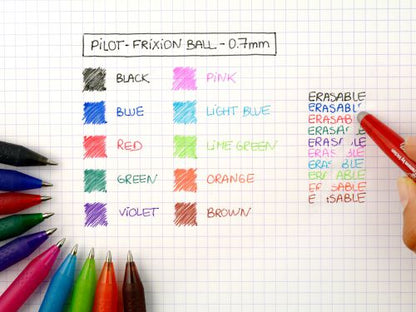 PILOT - FRIXION BALL - 0.7mm
BLACK
BLUE
RED
GREEN
VIOLET
PINK
LIGHT BLUE
LIME GREEN
ORANGE
BROWN
ERASABLE
ERASABLE
ERASAB
ERASABLE
ERAS BLE
ERAS BLE
ERA ABLE
ER ABLE
ER SABLE
E SABLE